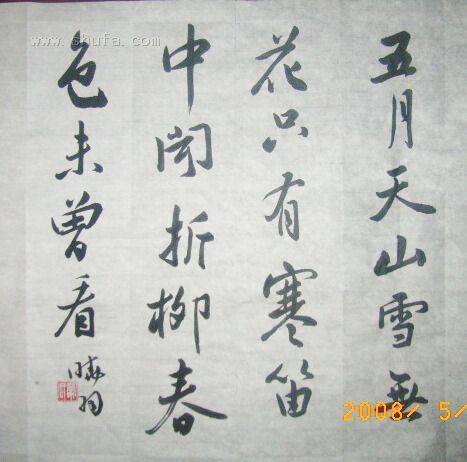 五月天山雪無
花只有寒笛
中闻折柳春
色未曾看
www.shufa.com
2008/ 5/